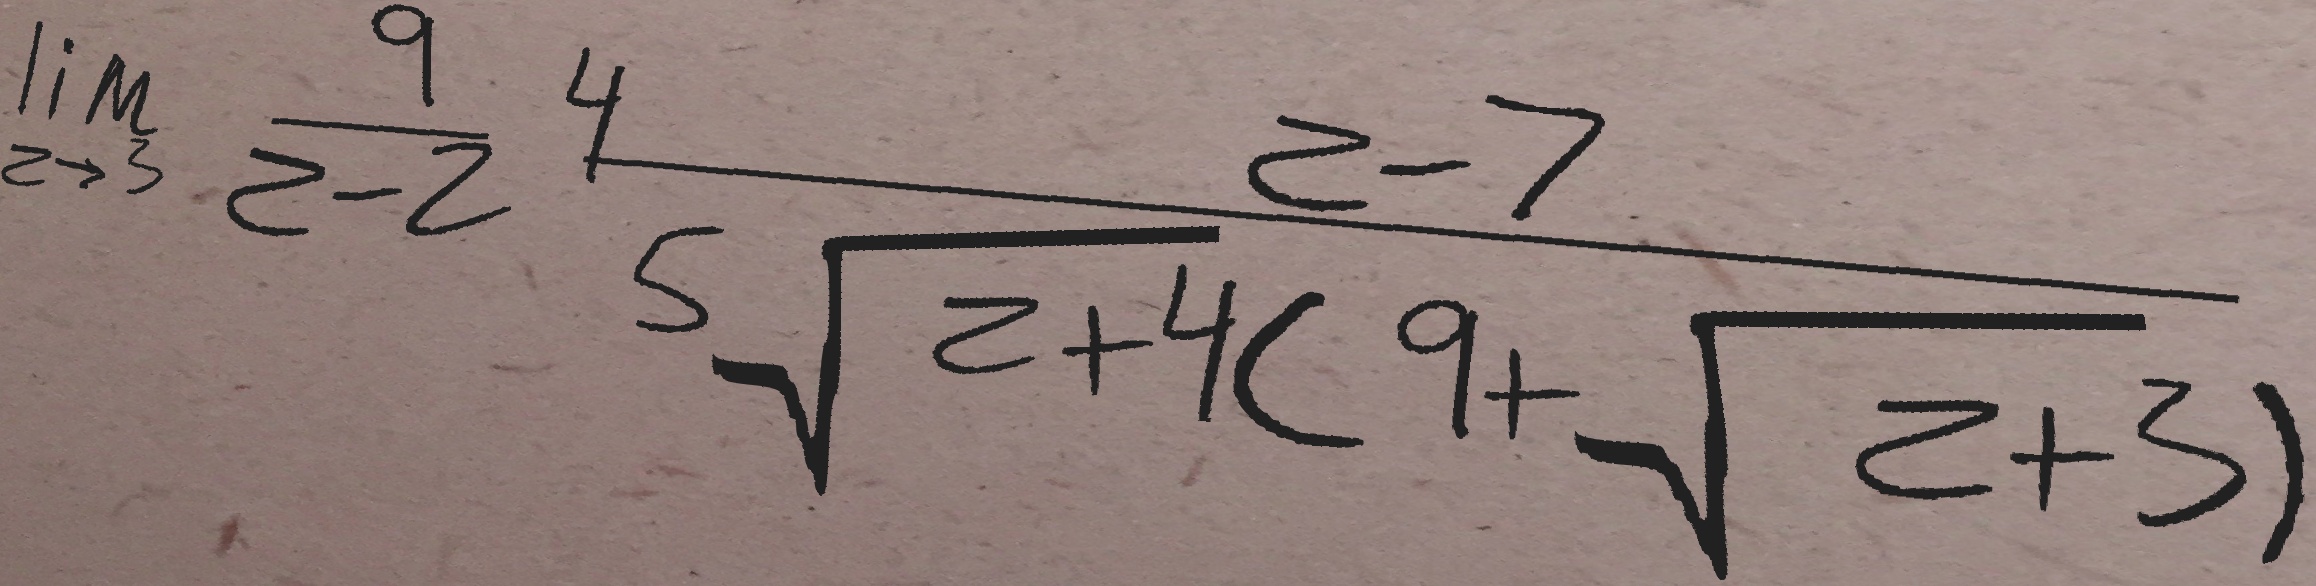 \lim_{z \to 3} \frac{9}{z-2} 4 \frac{z-7}{5\sqrt{z+4}(9+\sqrt{z+3})}